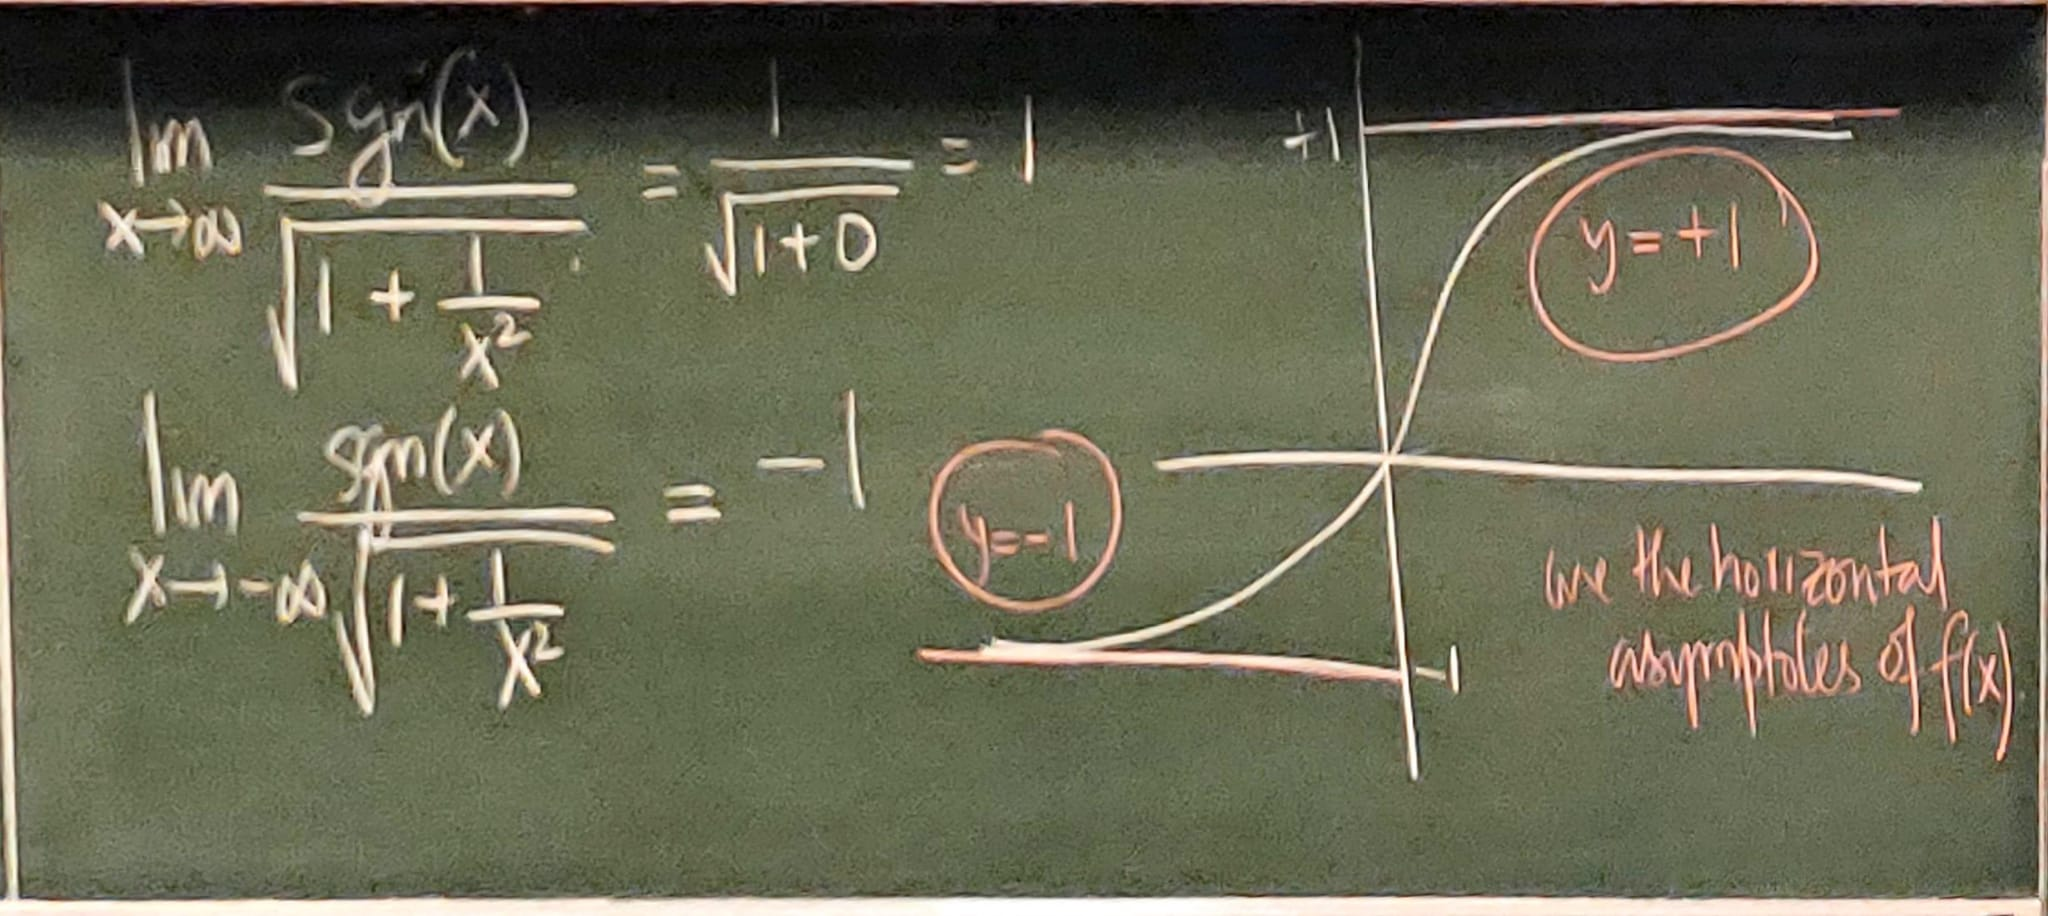 lim x→∞ sgn(x) / √(1 + 1/x²) = 1 / √(1+0) = 1
lim x→-∞ sgn(x) / √(1 + 1/x²) = -1
+1
y=+1
y=-1
-1
are the horizontal
asymptotes of f(x)